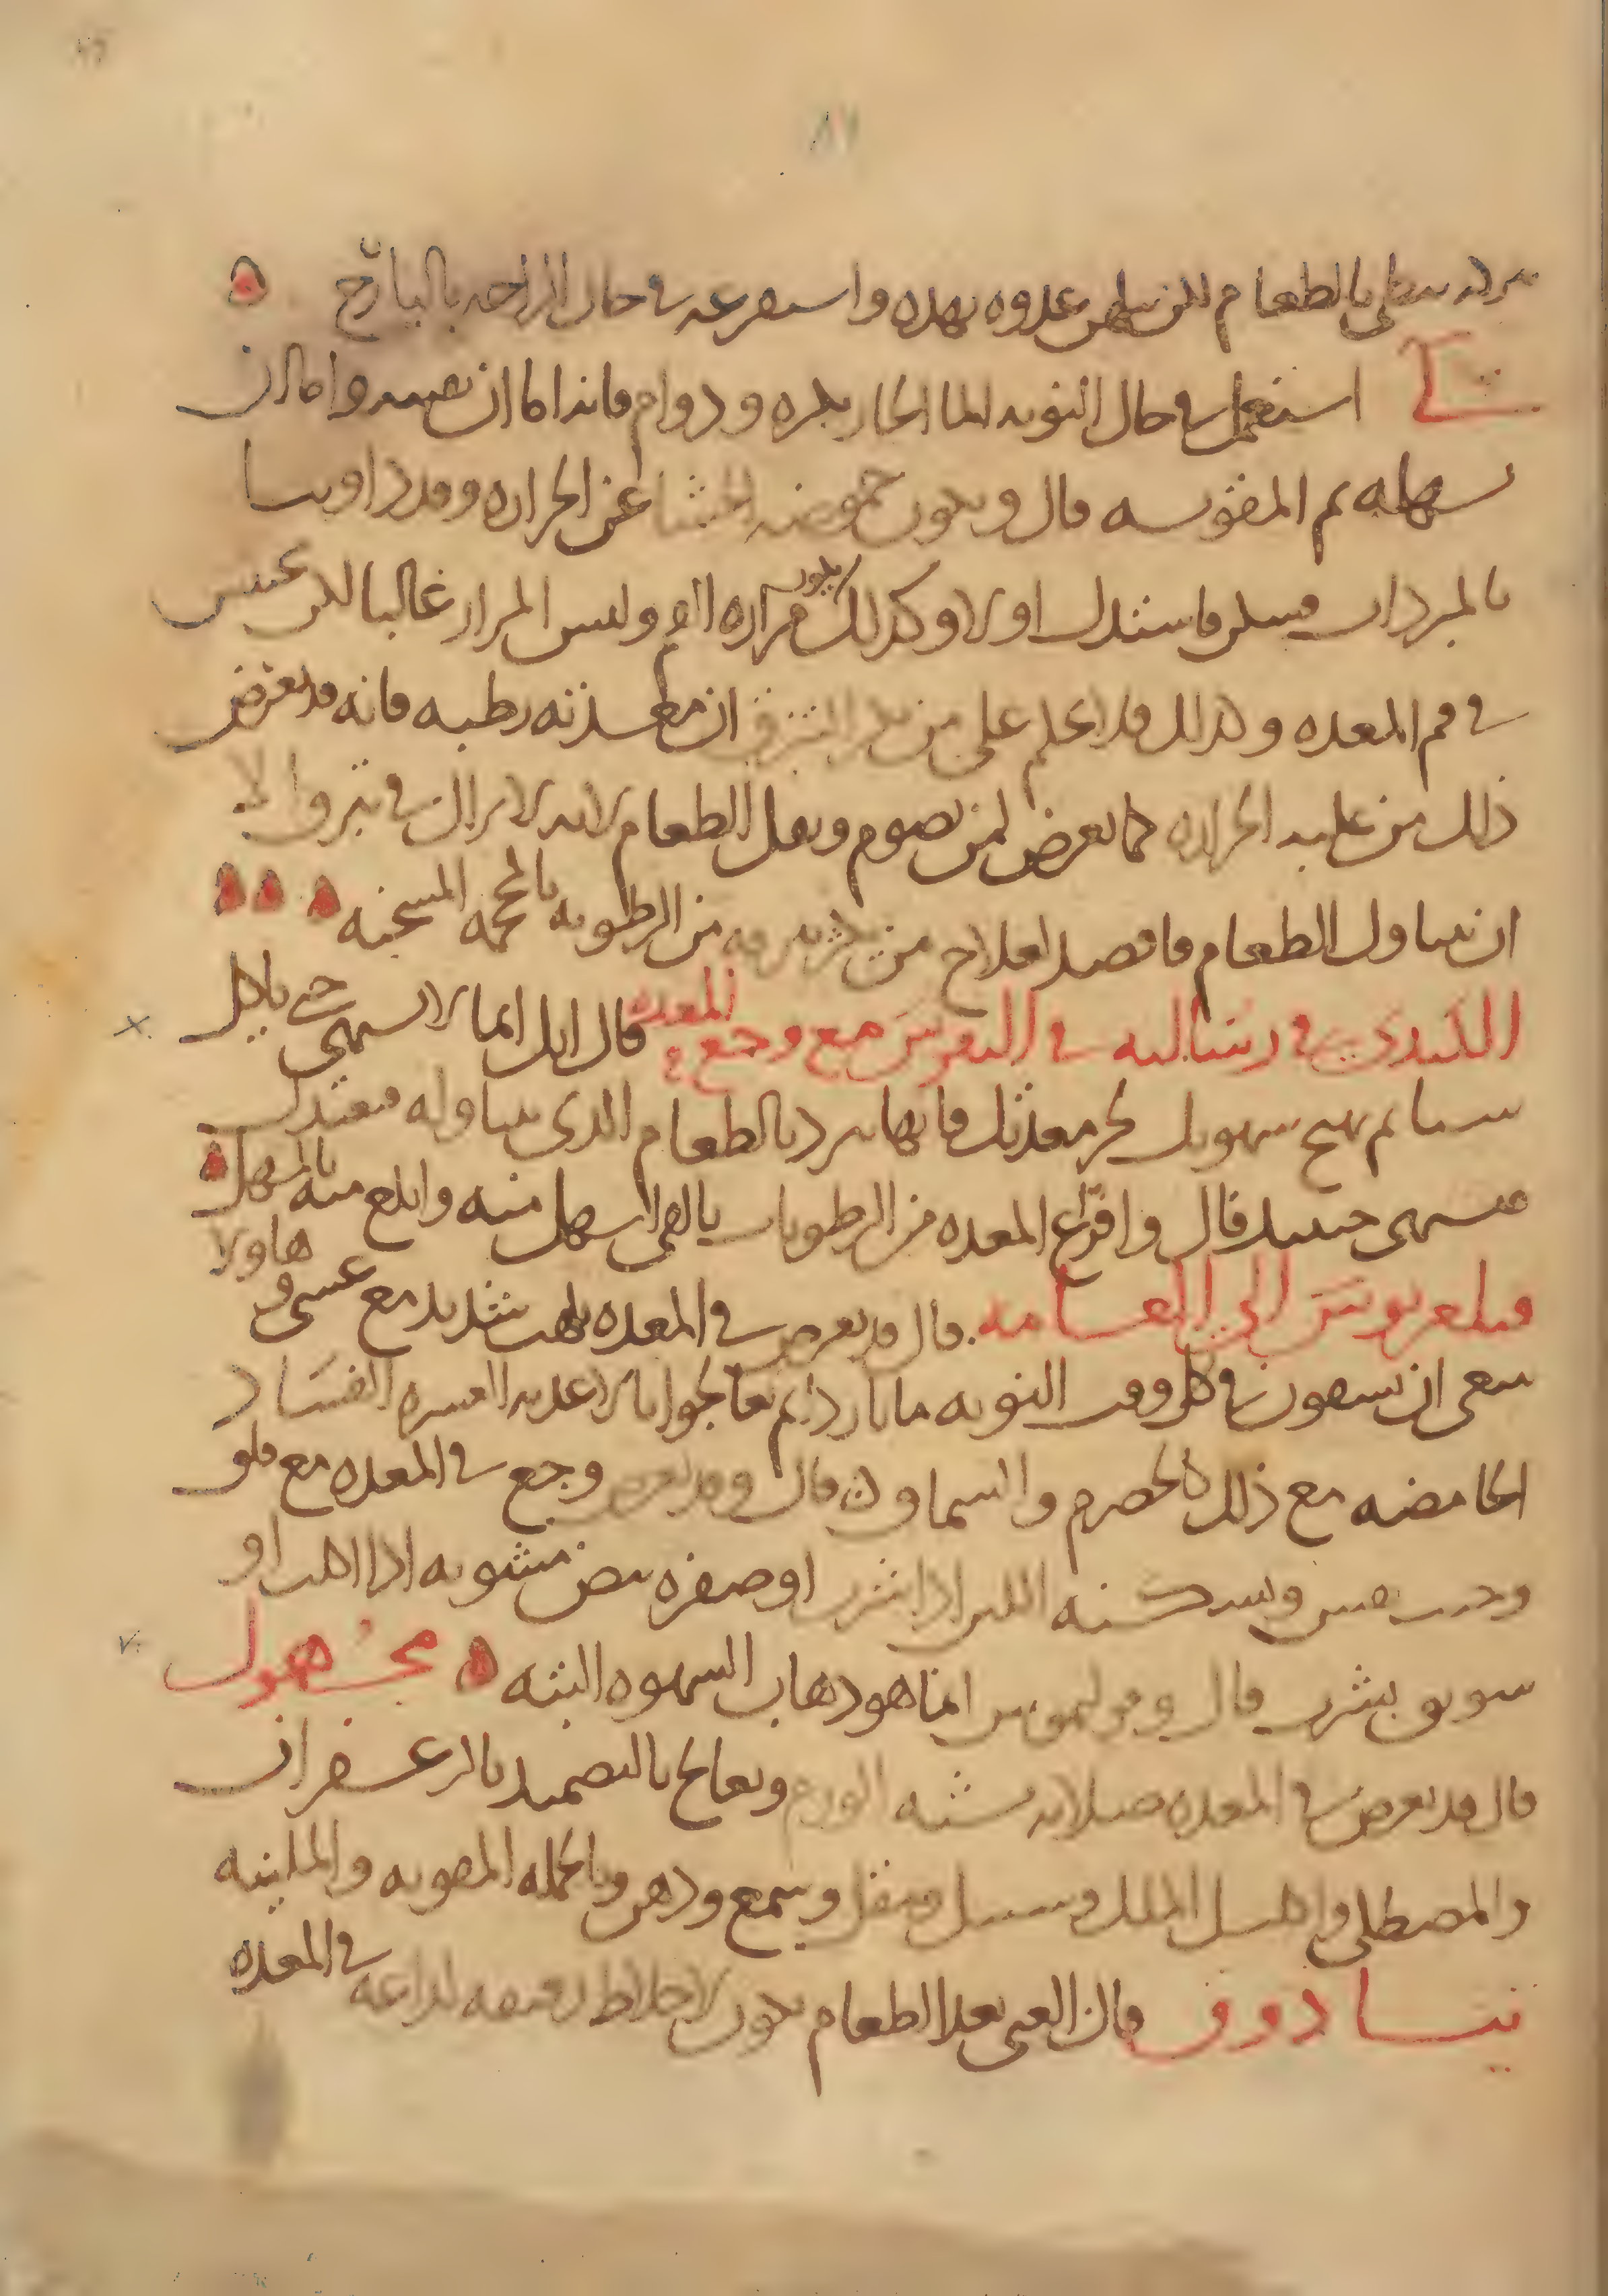 بالطعام لكن غدوه بهذه واستفرغه في حال الراحه باليارج
لي استعمل في حال النوبه الما الحار بجره ودوام فانه اما ان يقييه واما ان
يسهله ثم المقويه قال ويكون حموضه الجشا عن الحراره وقد داوينا
بالمبردات فسكن فاستدل اولا وكذلك يكون مراره الفم وليس المرار غالبا لكن محتبس
في فم المعده وكذلك قد احكم على من يكثر التبزق ان معدته رطبه فانه قد يعرض
ذلك من غلبه الحراره كما يعرض لمن يصوم ويقل الطعام لانه لا يزال في تبزق الا
ان يتناول الطعام فاقصد لعلاج من من الرطوبه بالحمه المسخنه
الكندي في رسالته في النقرس مع وجع المعده قال ايل انما لا يشتهي حتى ياكل
شيا ثم يهيج شهوتك لحر معدتك فانها تبرد بالطعام الذي تناوله فتعتدل
فتشتهي حينيذ قال وافراغ المعده من الرطوبات بالقي اسهل منه وابلغ منه بالمسهل
فيلغريوس الى العامه قال قد يعرض في المعده لهب شديد مع غشي وهاولا
ينبغي ان يسقون في كل وقت النوبه ما باردا ثم يعالجوا بالاغذيه العسره الفساد
الحامضه مع ذلك كالحصرم والسماق قال وقد يعرض وجع في المعده مع قلق
وكرب ويسكنه اللبن اذا شرب او صفره بيض مشويه اذا اكلت او
سويق يشرب قال وبوليموس انما هو ذهاب الشهوه البته مجهول
قال قد يعرض في المعده صلابه شبه الورم ويعالج بالتضميد بالزعفران
والمصطكى واكليل الملك وسنبل ومقل وشمع ودهن وبالجمله المقويه والملينه
تياذوق قال القي بعد الطعام يكون لاخلاط رقيقه لذاعه في المعده